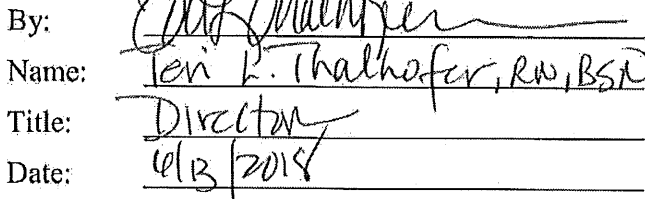 By:
Name: Teri L. Thalhofer, RN, BSN
Title: Director
Date: 6/13/2018